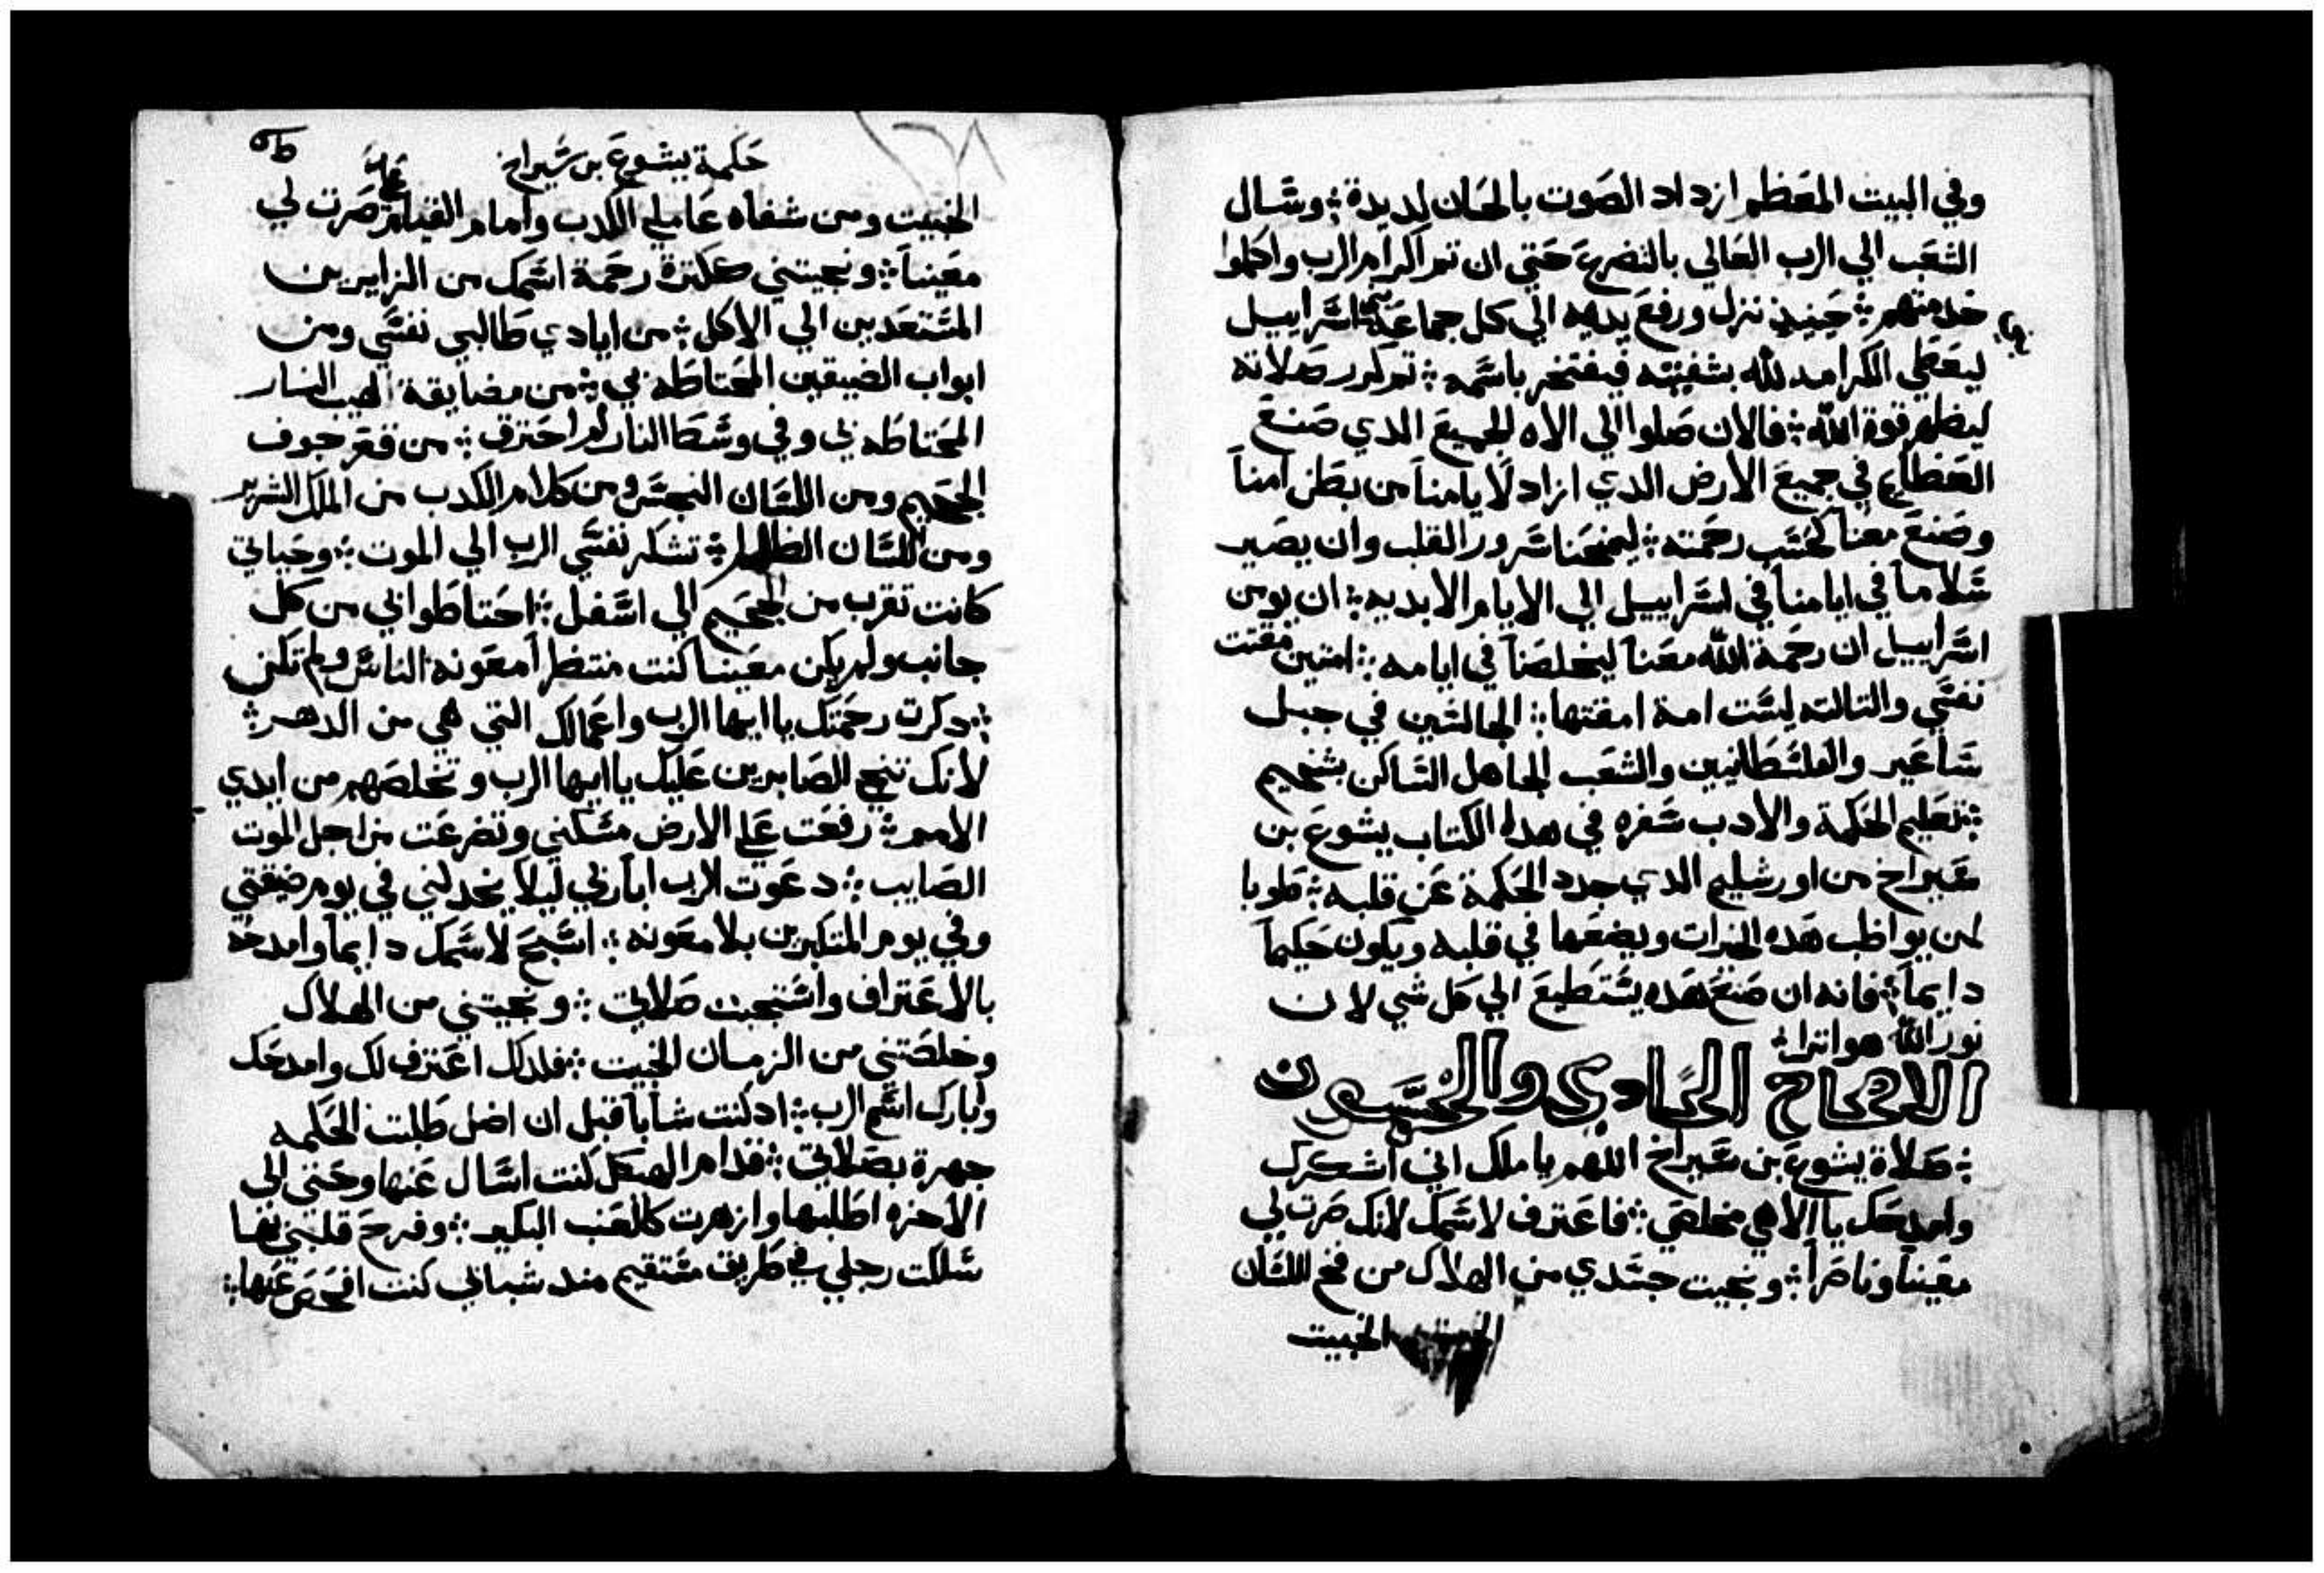 وفي البيت المعَظم ازداد الصَوت بالحَان لديدة؛ وسَال
الشعَب الي الرب العَالي بالتضرعَ حَتي ان تم اكرام الرب واكملوا
خدمتهم؛ حِينيذ نزل ورفعَ يديه الي كل جماعَة بني اسَراييل
ليعَطي الكرامه لله بشفتيه فيفتخر باسَمه؛ تم كرر صَلاته
ليظهر قوة الله؛ فالان صَلوا الي الاه الجميعَ الدي صَنعَ
العَظايم في جميعَ الارض الدي ازاد لَايامناً من بطن امناً
وصَنعَ معَنا كحسَب رحَمته؛ ليمنحَنا سَرور القلب وان يصَير
سَلاماً في ايامناً في اسَراييل الي الايام الابديه؛ ان يومن
اسَراييل ان رحَمة الله معَناً ليخلصَناً في ايامه؛ امتين مقتت
نفسَي والتالته ليسَت امة امقتها؛ الجالسَين في جبل
سَاعَير والفلسَطانيين والشعَب الجاهل السَاكن بشخيم
؛ تعَليم الحَكمة والادب سَفره في هدا الكتاب يشوعَ بن
سَيراخ من اورشليم الدي جدد الحَكمة عَن قلبه؛ طوبا
لمن يواظب هَده الخيرات ويضعَها في قلبه ويكون حَكيماً
دايماً؛ فانه ان صَنعَ هَده يسَتطيعَ الي كل شي لان
نور الله هو اترا؛
الاصحاح الحَادي والخمسَون
؛ صَلاة يشوعَ بن سَيراخ اللهم يا ملك اني اشكرك
وامدحَك يا الاهي مخلصَي؛ فاعَترف لاسَمك لانك صَرت لي
معَيناً وناصَراً؛ ونجيت جسَدي من الهلاك من فخ اللسَان
الخبيت
حَكمة يشوعَ بن سَيراخ
الخبيت ومن شفاه عَاملي الكدب وامام القيام صَرت لي
معَيناً؛ ونجيتني ككترة رحَمة اسَمك من الزايرين
المسَتعَدين الي الاكل؛ من ايادي طَالبي نفسَي ومن
ابواب الضيقين المحَتاطَه بي؛ من مضايقة لهيب النار
المحَتاطَه بي وفي وسَطَ النار لم احَترق؛ من قعَر جوف
الجحَيم ومن اللسَان النجسَ ومن كلام الكدب من الملك الشرير
ومن اللسَان الظالم؛ تشكر نفسَي الرب الي الموت؛ وحَياتي
كانت تقرب من الجحَيم الي اسَفل؛ احَتاطَوا بي من كل
جانب ولم يكن معَينا كنت منتظراً معَونه الناسَ ولم تكن
؛ دكرت رحَمتك يا ايها الرب واعَمالك التي هي من الدهر؛
لانك تنجي الصَابرين عَليك يا ايها الرب وتخلصَهم من ايدي
الامم؛ رفعَت عَلي الارض مسَكني وتضرعَت من اجل الموت
الصَايب؛ دعَوت الرب ابا ربي ليلا يخدلني في يوم ضيقتي
وفي يوم المتكبرين بلا معَونه؛ اسَبحَ لاسَمك دايماً وامدحَه
بالاعَتراف واسَتجبت صَلاتي؛ ونجيتني من الهلاك
وخلصَتني من الزمان الخبيت؛ فلدلك اعَترف لك وامدحَك
وابارك اسَم الرب؛ اد كنت شاباً قبل ان اضل طَلبت الحَكمه
جهرة بصَلاتي؛ قدام الهيكل كنت اسَال عَنها وحَتي الي
الاخره اطَلبها وازهرت كالعَنب البكير؛ وفرحَ قلبي بها
سَلكت رجلي في طَريق مسَتقيم مند شبابي كنت افحَصَ عَنها؛